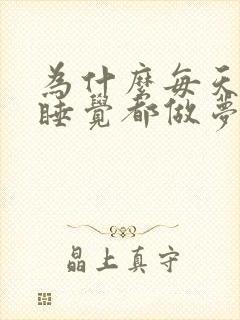 為什麼每天
睡覺都做夢
晶上真守